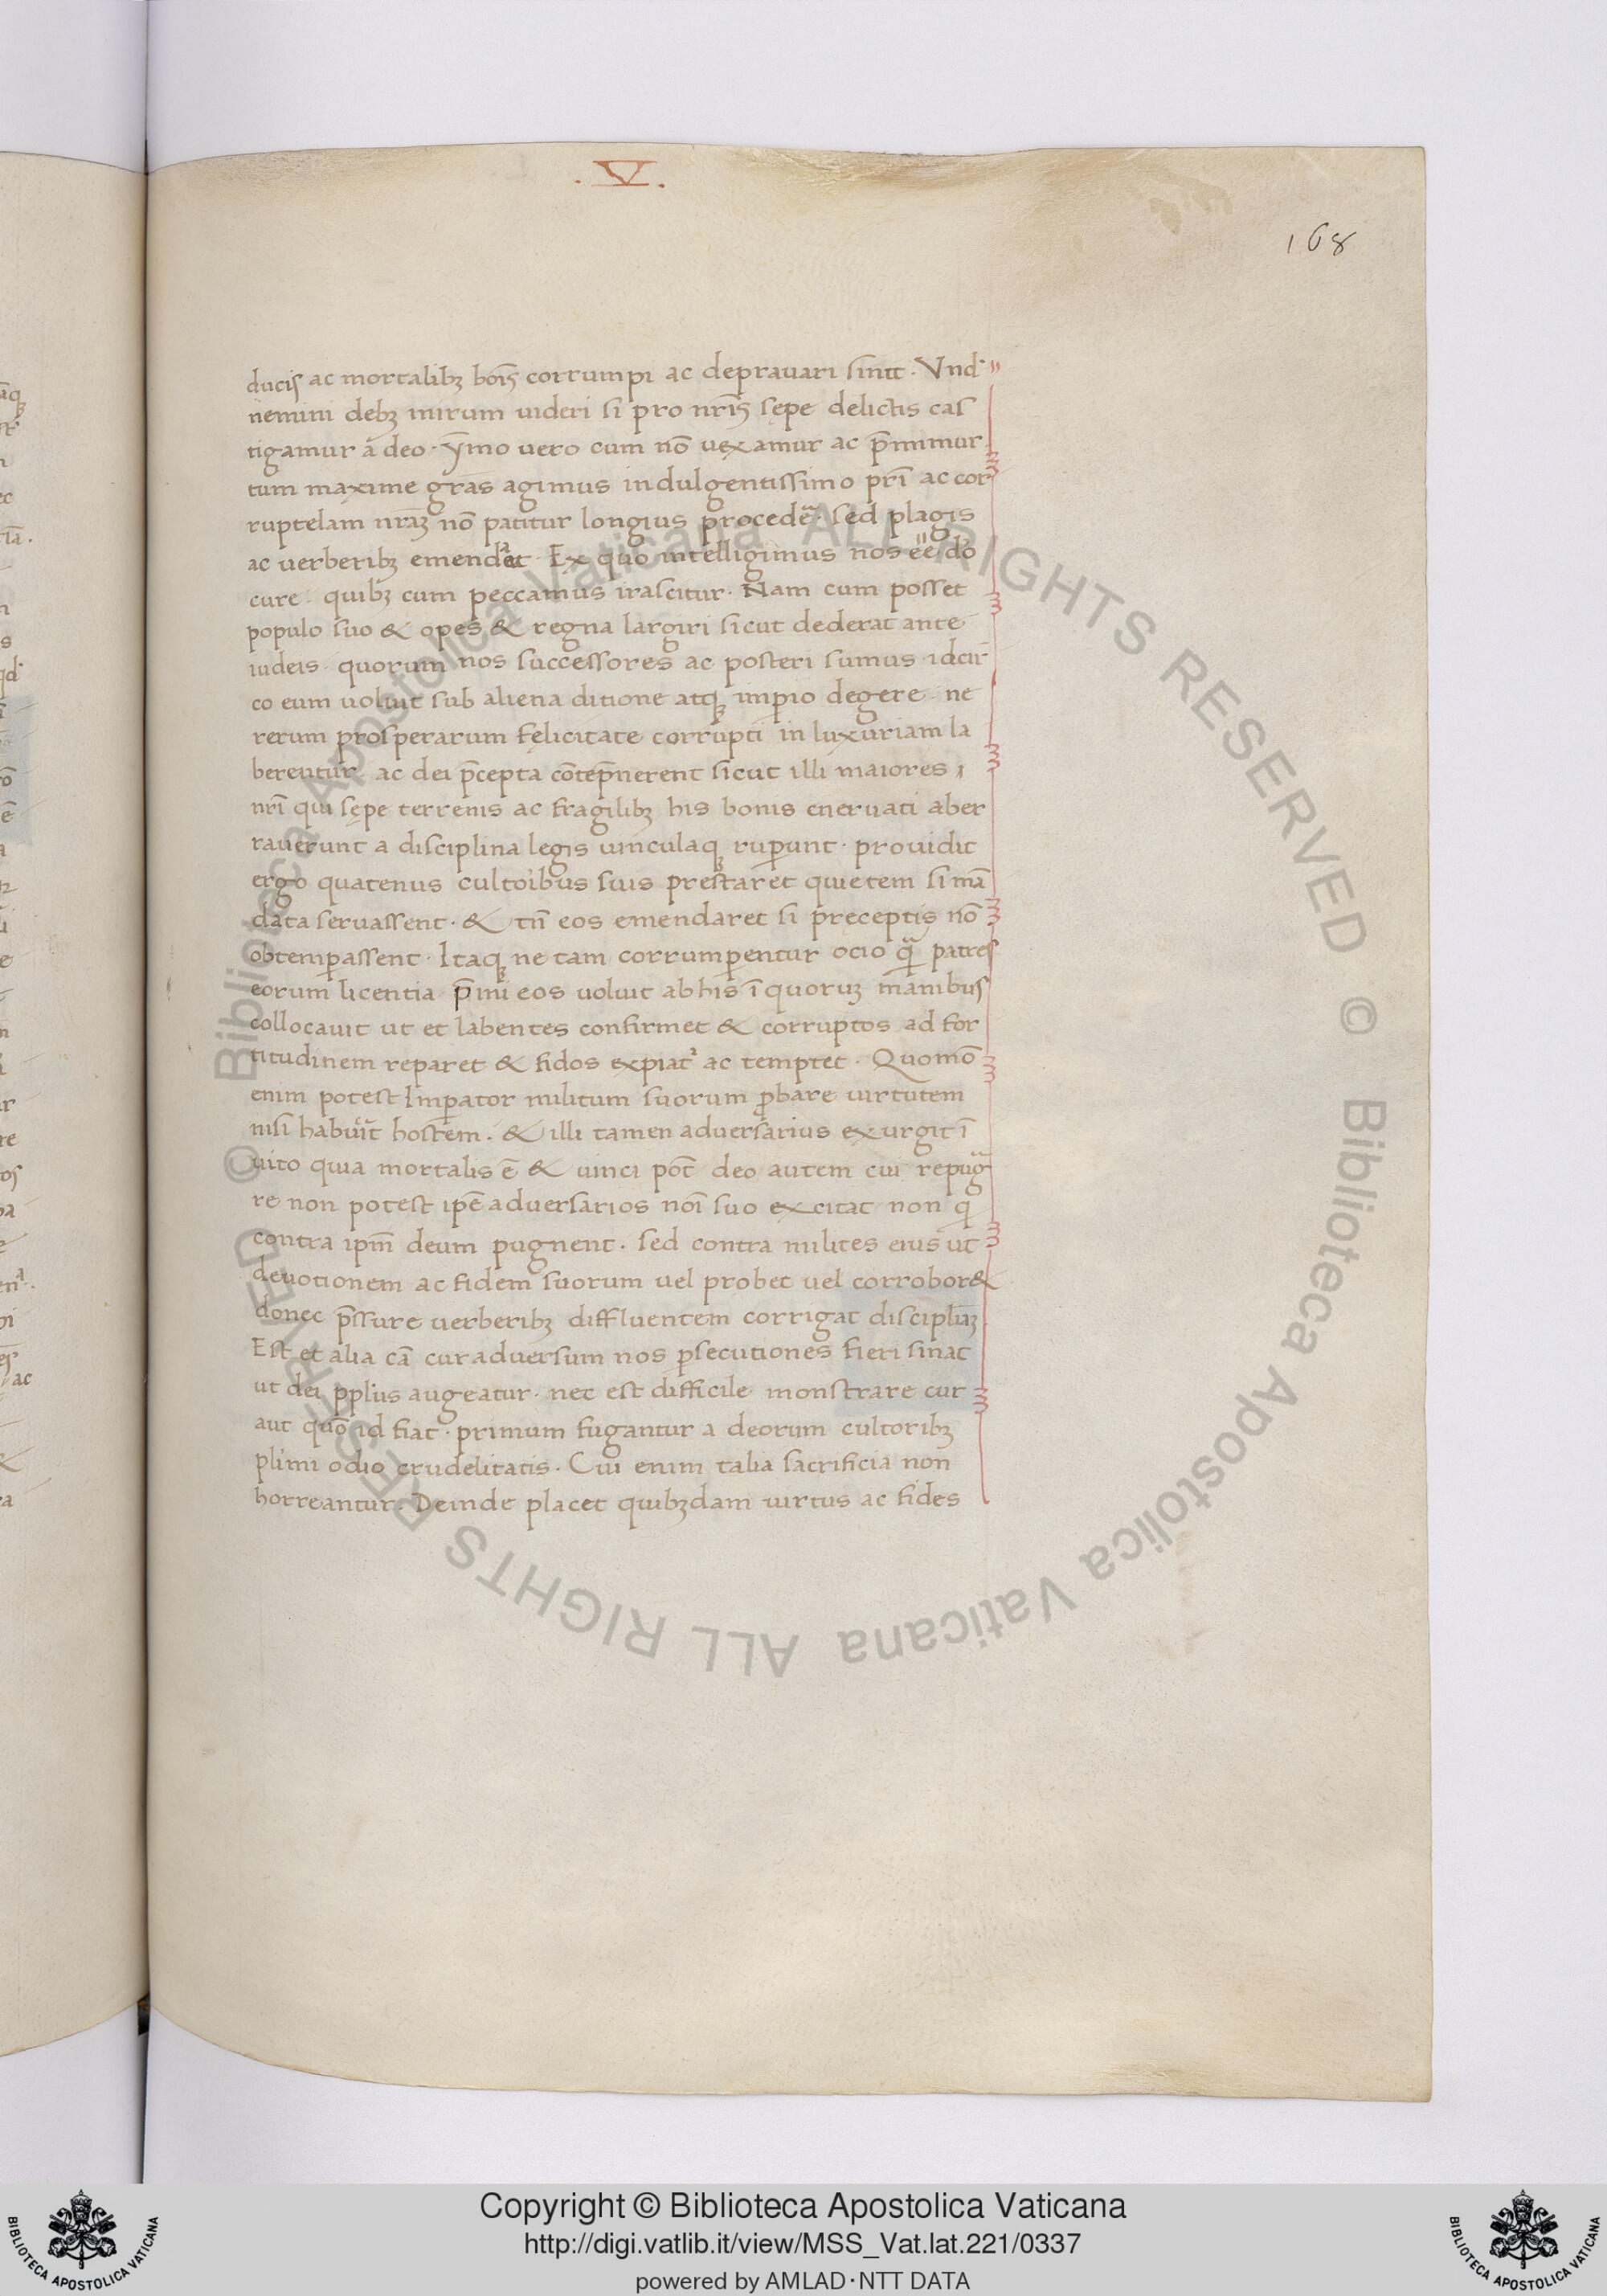 .V.
168
ducis ac mortalibꝫ boīs corrumpi ac deprauari sinit. Vnd·
nemini debꝫ mirum uideri si pro nr̄is sępe delictis cas
tigamur á deo. ẏmo uero cum nō uexamur ac p̄mimur
tum maxime gr̄as agimus indulgentissimo pr̄i ac cor
ruptelam nr̄aꝫ nō patitur longius procedē. sed plagis
ac uerberibꝫ emendat. Ex quo intelligimus nos eē dō
cure. quibꝫ cum peccamus irascitur. Nam cum posset
populo suo & opes & regna largiri sicut dederat ante
iudeis. quorum nos successores ac posteri sumus idcir
co eum uoluit sub aliena ditione atqꝫ imꝑio degere. ne
rerum prosperarum felicitate corrupti in luxuriam la
berentur ac dei p̄cepta cōtep̄nerent sicut illi maiores
nr̄i qui sępe terrenis ac fragilibꝫ his bonis eneruati aber
rauerunt a disciplina legis uinculaqꝫ ruꝑunt. prouidit
ergo quatenus cultoribus suis prestaret quietem si mā
data seruassent. & tn̄ eos emendaret si preceptis nō
obtemꝑassent. Itaqꝫ ne tam corrumꝑentur ocio q̄ patres
eorum licentia p̄mi eos uoluit ab his ī quoruꝫ manibus
collocauit ut et labentes confirmet & corruptos ad for
titudinem reparet & fidos expiat² ac temptet. Quomō
enim potest Imꝑator militum suorum ꝓbare uirtutem
nisi habuīt hostem. & illi tamen aduersarius exurgit ī
uito quia mortalis ē & uinci pōt deo autem cui repug̃
re non potest ip̄e aduersarios noī suo excitat non q̄
contra ip̄m deum pugnent. sed contra milites eius ut
deuotionem ac fidem suorum uel probet uel corrobor&
donec p̄ssure uerberibꝫ diffluentem corrigat discipliāꝫ
Est et alia cā cur aduersum nos ꝑsecutiones fieri sinat
ut dei ppl̄us augeatur. nec est difficile monstrare cur
aut quō id fiat. primum fugantur a deorum cultoribꝫ
pl̄imi odio crudelitatis. Cui enim talia sacrificia non
horreantur. Deinde placet quibꝫdam uirtus ac fides
© Biblioteca Apostolica Vaticana ALL RIGHTS RESERVED © Biblioteca Apostolica Vaticana ALL RIGHTS RESERVED
Copyright © Biblioteca Apostolica Vaticana
http://digi.vatlib.it/view/MSS_Vat.lat.221/0337
powered by AMLAD·NTT DATA
BIBLIOTECA APOSTOLICA VATICANA
BIBLIOTECA APOSTOLICA VATICANA